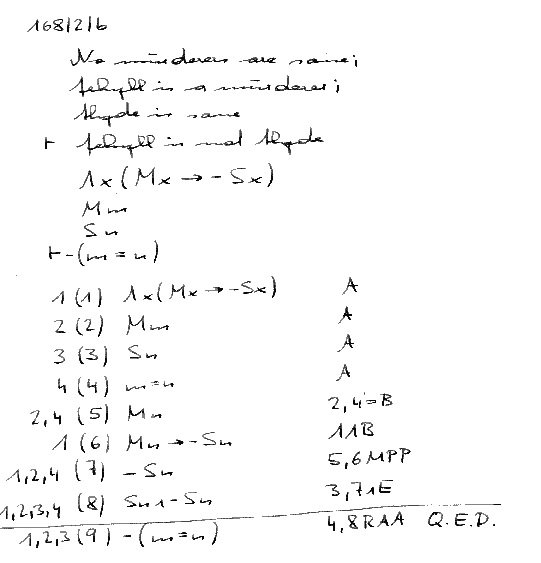 168/2/b
No murderers are sane;
Jekyll is a murderer;
Hyde is sane
⊢ Jekyll is not Hyde
Λx(Mx → -Sx)
Mm
Sn
⊢ -(m = n)
1 (1) Λx(Mx → -Sx) A
2 (2) Mm A
3 (3) Sn A
4 (4) m=n A
2,4 (5) Mn 2,4=B
1 (6) Mn → -Sn 1ΛB
1,2,4 (7) -Sn 5,6MPP
1,2,3,4 (8) Sn ∧ -Sn 3,7∧E
1,2,3 (9) -(m=n) 4,8RAA Q.E.D.